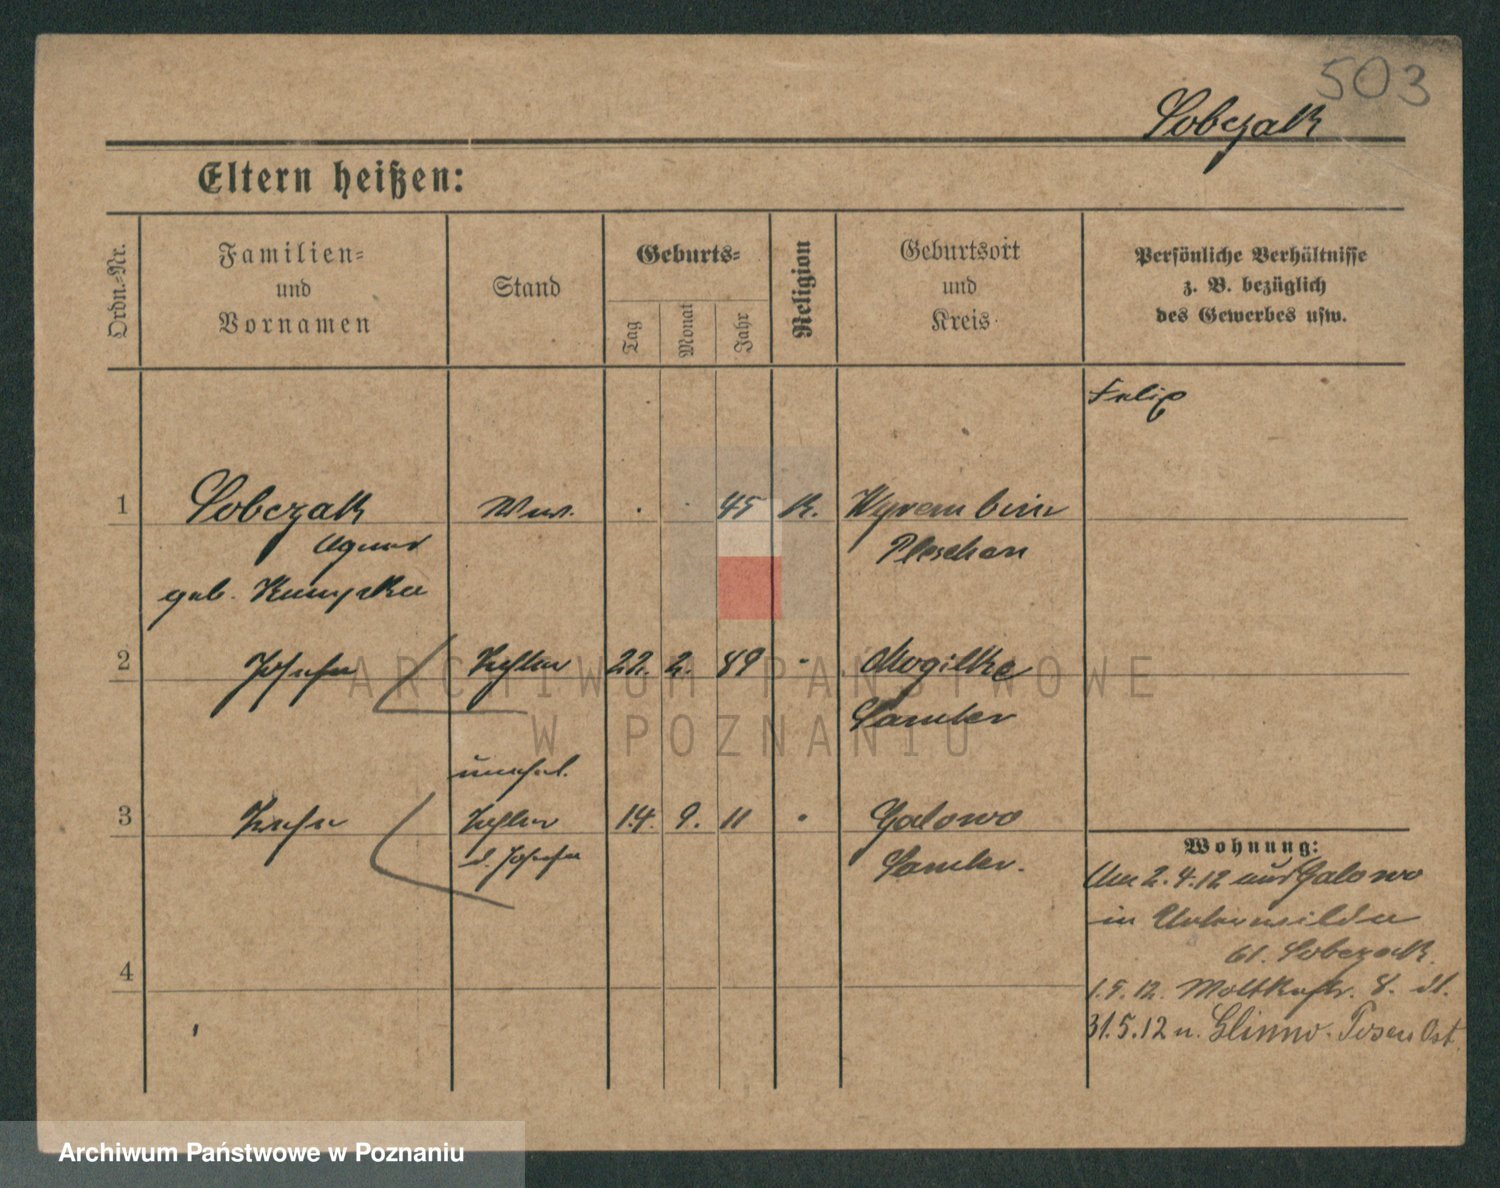 503
Sobczak
Eltern heißen:
Ordn.-Nr.
Familien-
und
Vornamen
Stand
Geburts-
Tag
Monat
Jahr
Religion
Geburtsort
und
Kreis
Persönliche Verhältnisse
z. B. bezüglich
des Gewerbes usw.
1
Sobczak
Agnes
geb.
Ww.
45
K.
Pleschen
2
Josefa
Tochter
22. 2. 89
Mogilke
Samter
3
unehel.
Tochter
d. Josefa
14. 9. 11
Galowo
Samter.
4
Wohnung:
Am 2.4.12 aus Galowo
in Unterwilda
61. Sobczak.
1.5.12. Moltkestr. 8.
31.5.12 n. Glinno. Posen Ost.
ARCHIWUM PAŃSTWOWE
W POZNANIU
Archiwum Państwowe w Poznaniu